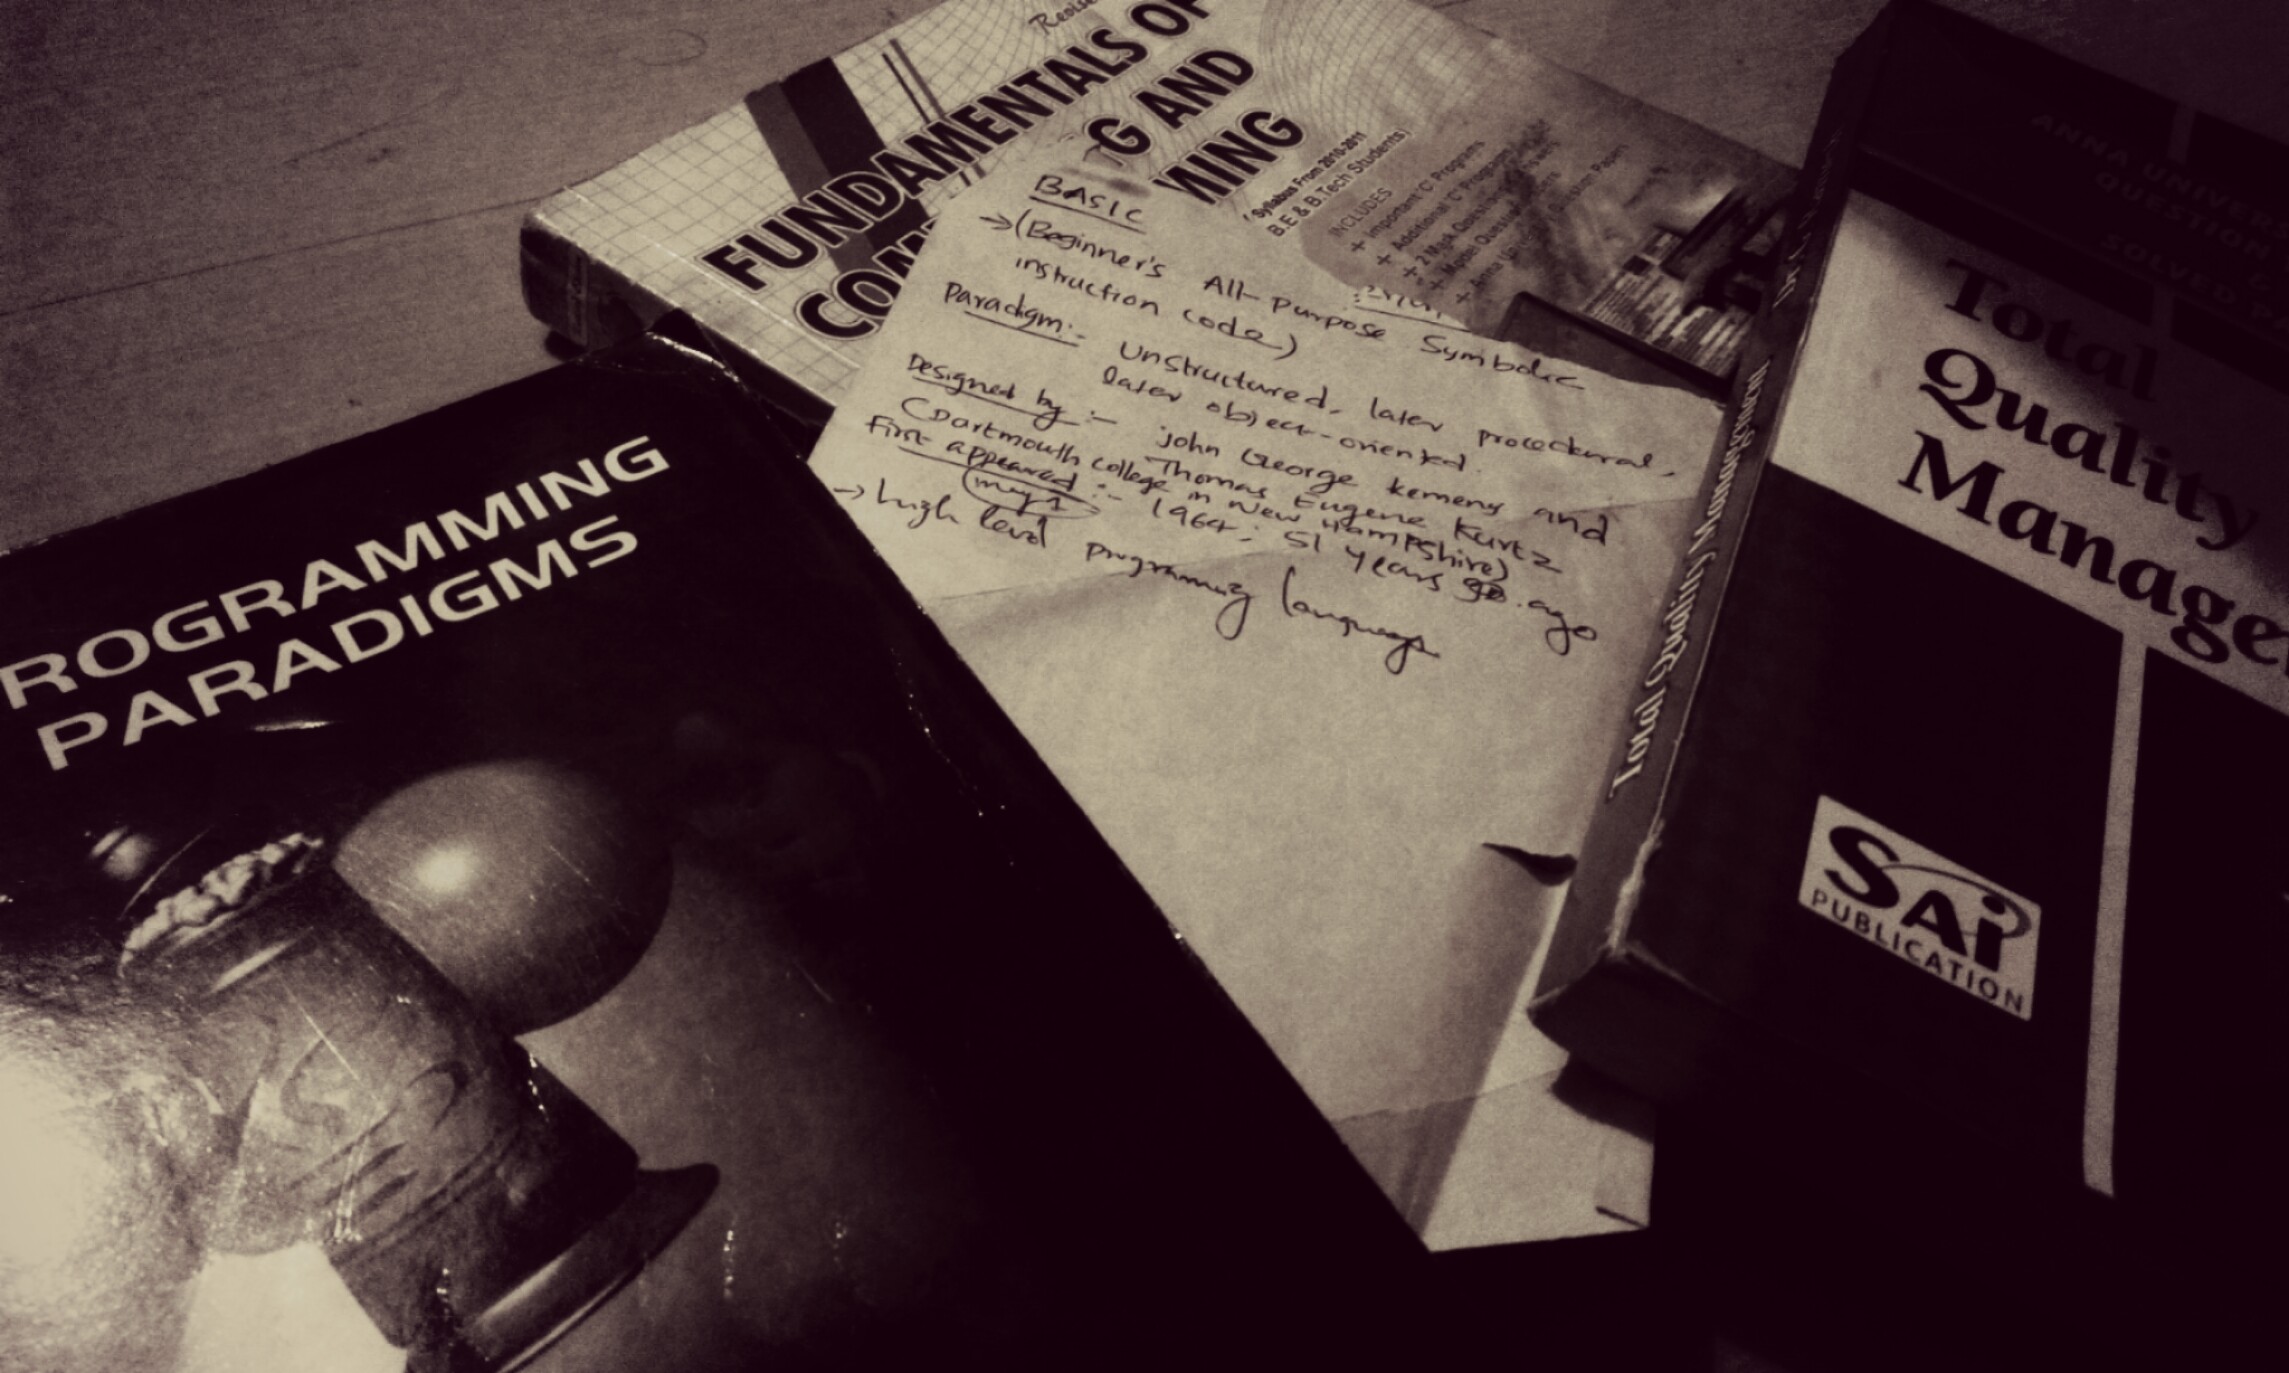 FUNDAMENTALS OF
G AND
MING
Syllabus From 2010-2011
B.E & B.Tech Students)
INCLUDES
+ Important 'C' Programs
+ Additional 'C'
+ 2 Mark
+ Model
+ Anna
BASIC
→ (Beginner's All-purpose Symbolic
instruction code)
Paradigm:- Unstructured, later procedural,
later object-oriented.
Designed by :- john George kemeny and
Thomas Eugene Kurtz
(Dartmouth college in New Hampshire)
First appeared :- 1964; 51 years ago
(may 1
→ high level programming language
ROGRAMMING
PARADIGMS
ANNA UNIVERS
QUESTION
SOLVED
Total
Quality
Manage
Total Quality Management
SAi
PUBLICATION